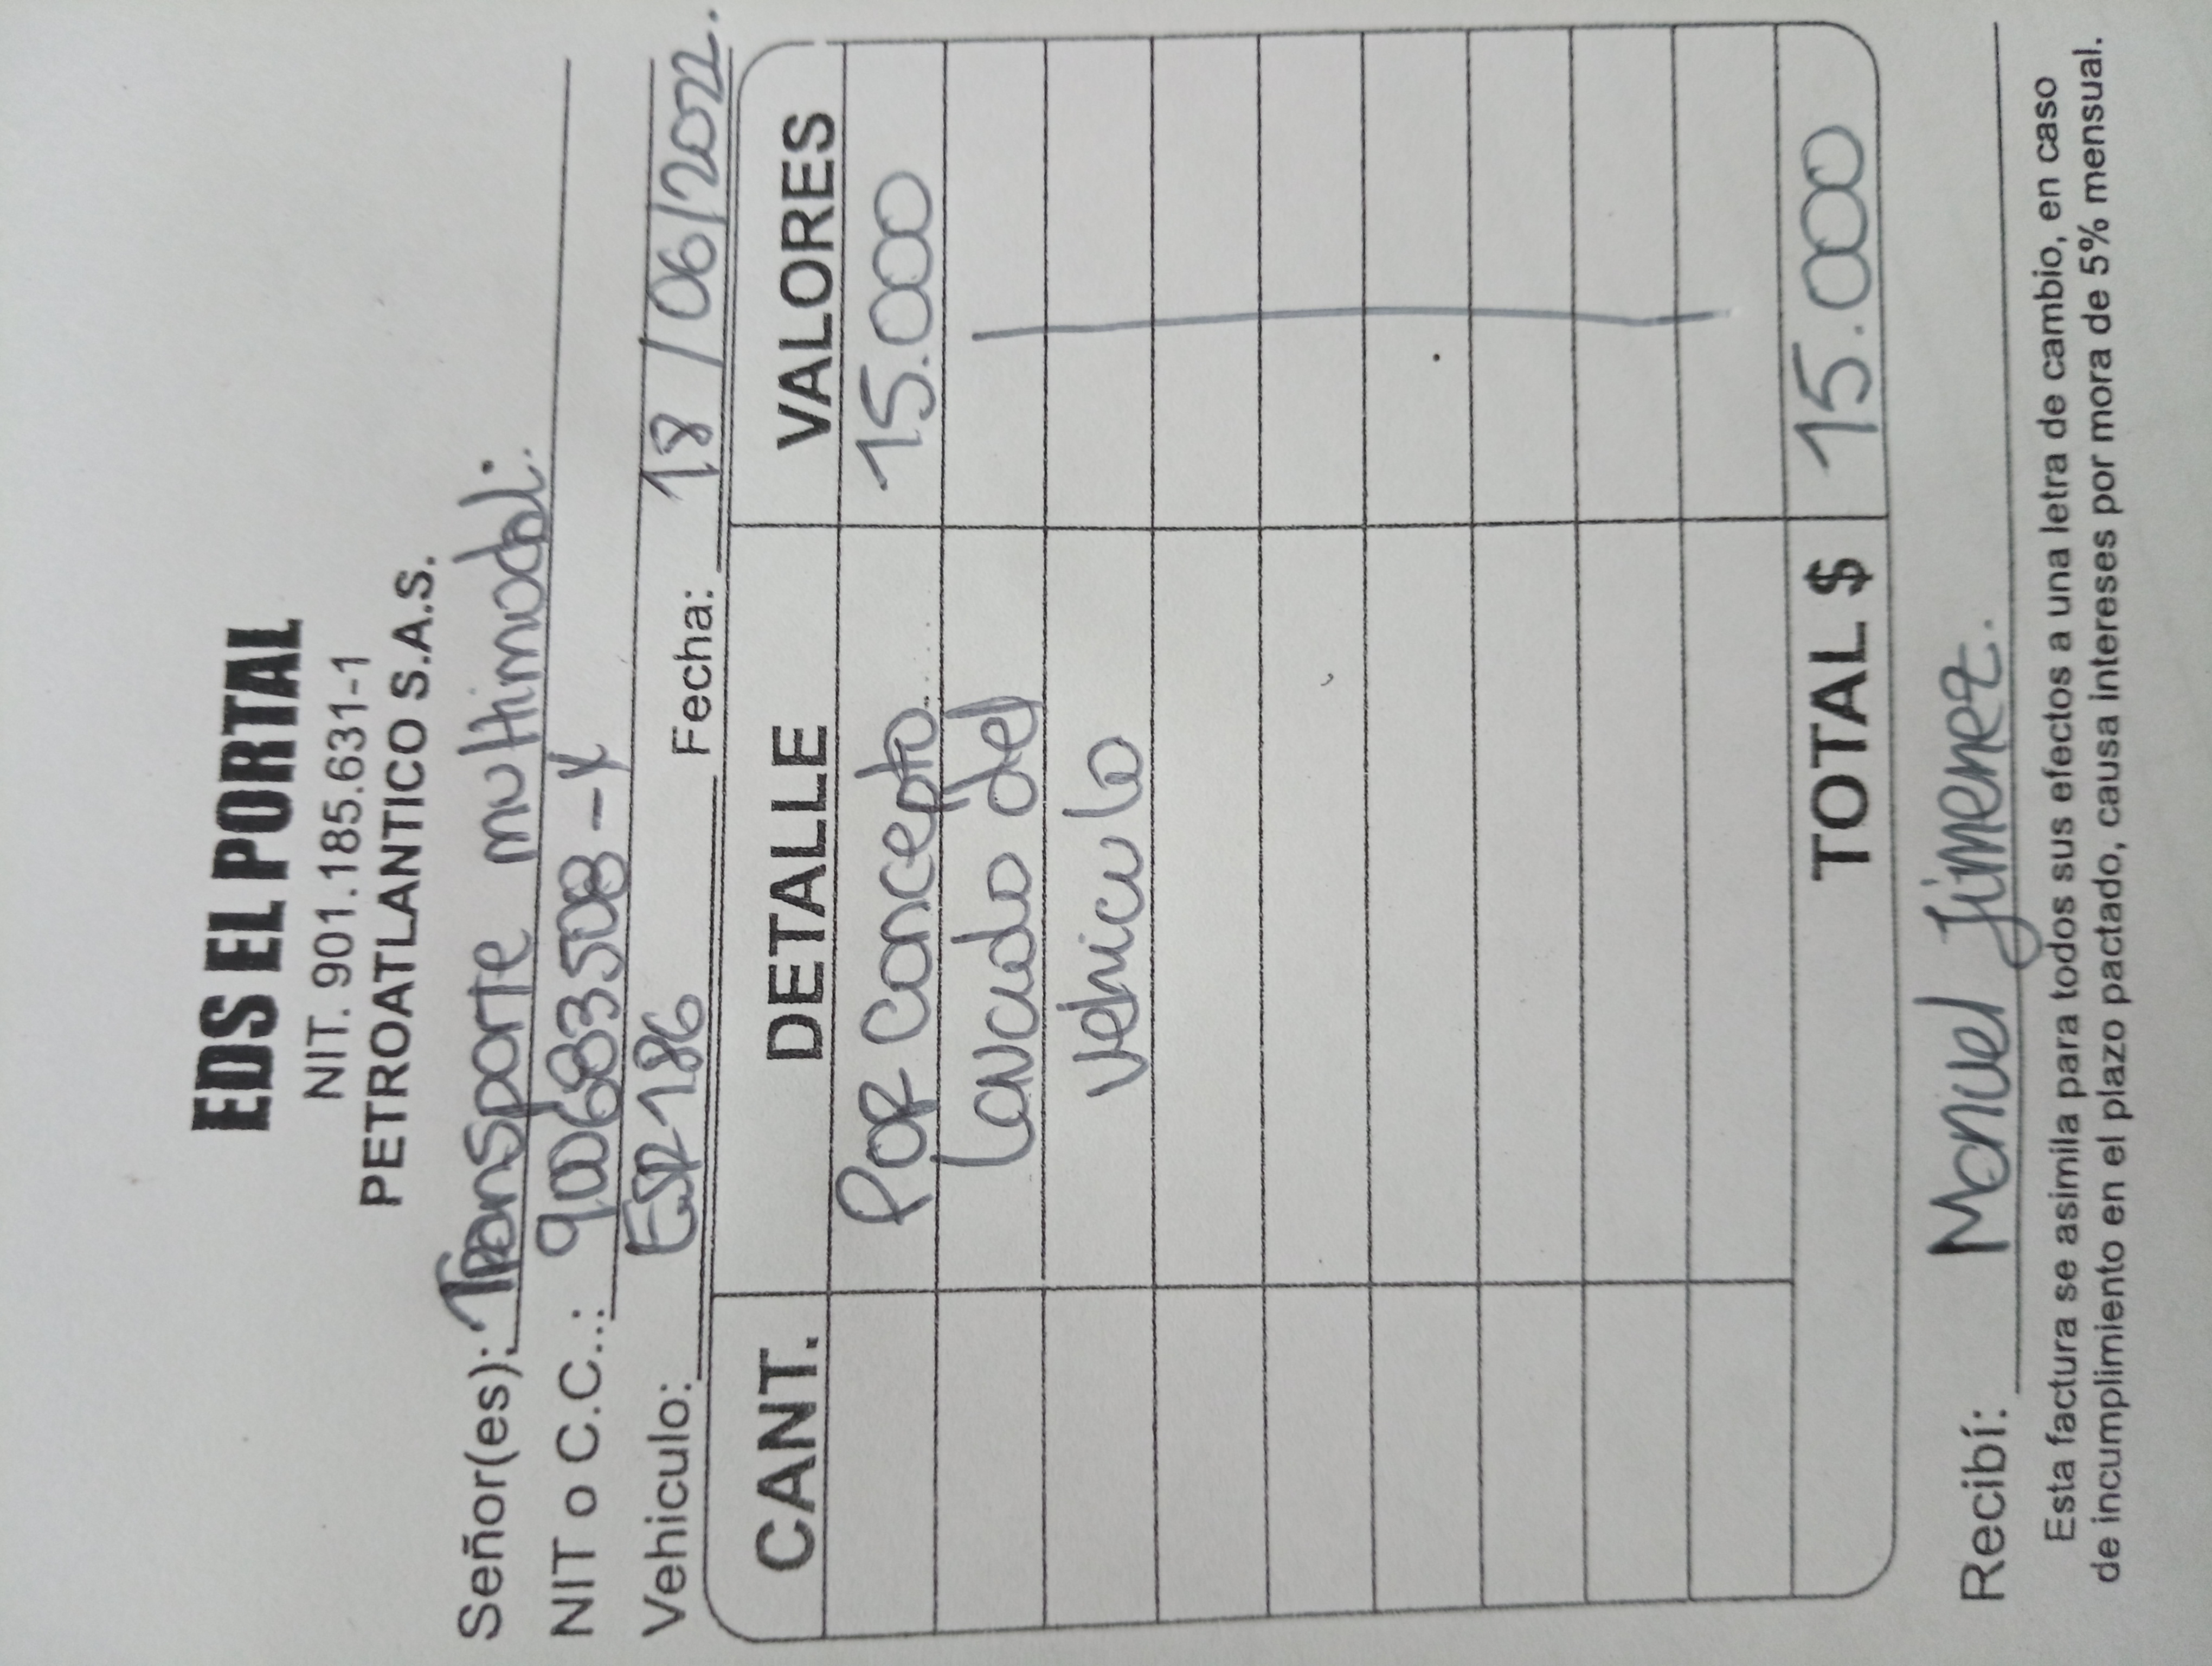 EDS EL PORTAL
NIT. 901.185.631-1
PETROATLANTICO S.A.S.
Señor(es): Transporte multimodal.
NIT o C.C.: 900683508-4
Vehiculo: ESR186 Fecha: 18/06/2022.
CANT. DETALLE VALORES
Por concepto 15.000
Lavado del
vehiculo
TOTAL $ 15.000
Recibí: Manuel Jimenez.
Esta factura se asimila para todos sus efectos a una letra de cambio, en caso
de incumplimiento en el plazo pactado, causa intereses por mora de 5% mensual.